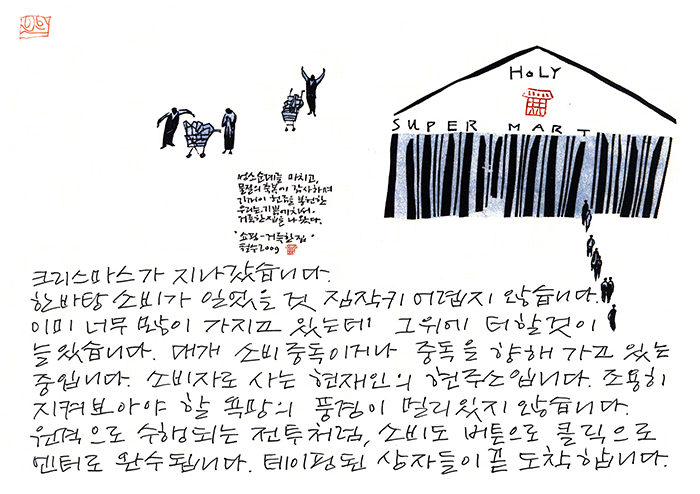 HOLY
SUPER MART
성소순례를 마치고,
물질의 축복에 감사하며
기꺼이 헌금을 봉헌한
우리는, 기쁨에 차서,
거룩한 집을 나왔다.
"쇼핑-거룩한 집"
철수2009
크리스마스가 지나갔습니다.
한바탕 소비가 일었을 것 짐작키 어렵지 않습니다.
이미 너무 많이 가지고 있는데 그위에 더할것이
늘 있습니다. 대개 소비중독이거나 중독을 향해 가고 있는
중입니다. 소비자로 사는 현재인의 현주소입니다. 조용히
지켜보아야 할 욕망의 풍경이 멀리있지 않습니다.
원격으로 수행되는 전투처럼, 소비도 버튼으로 클릭으로
엔터로 완수됩니다. 테이핑된 상자들이 곧 도착합니다.